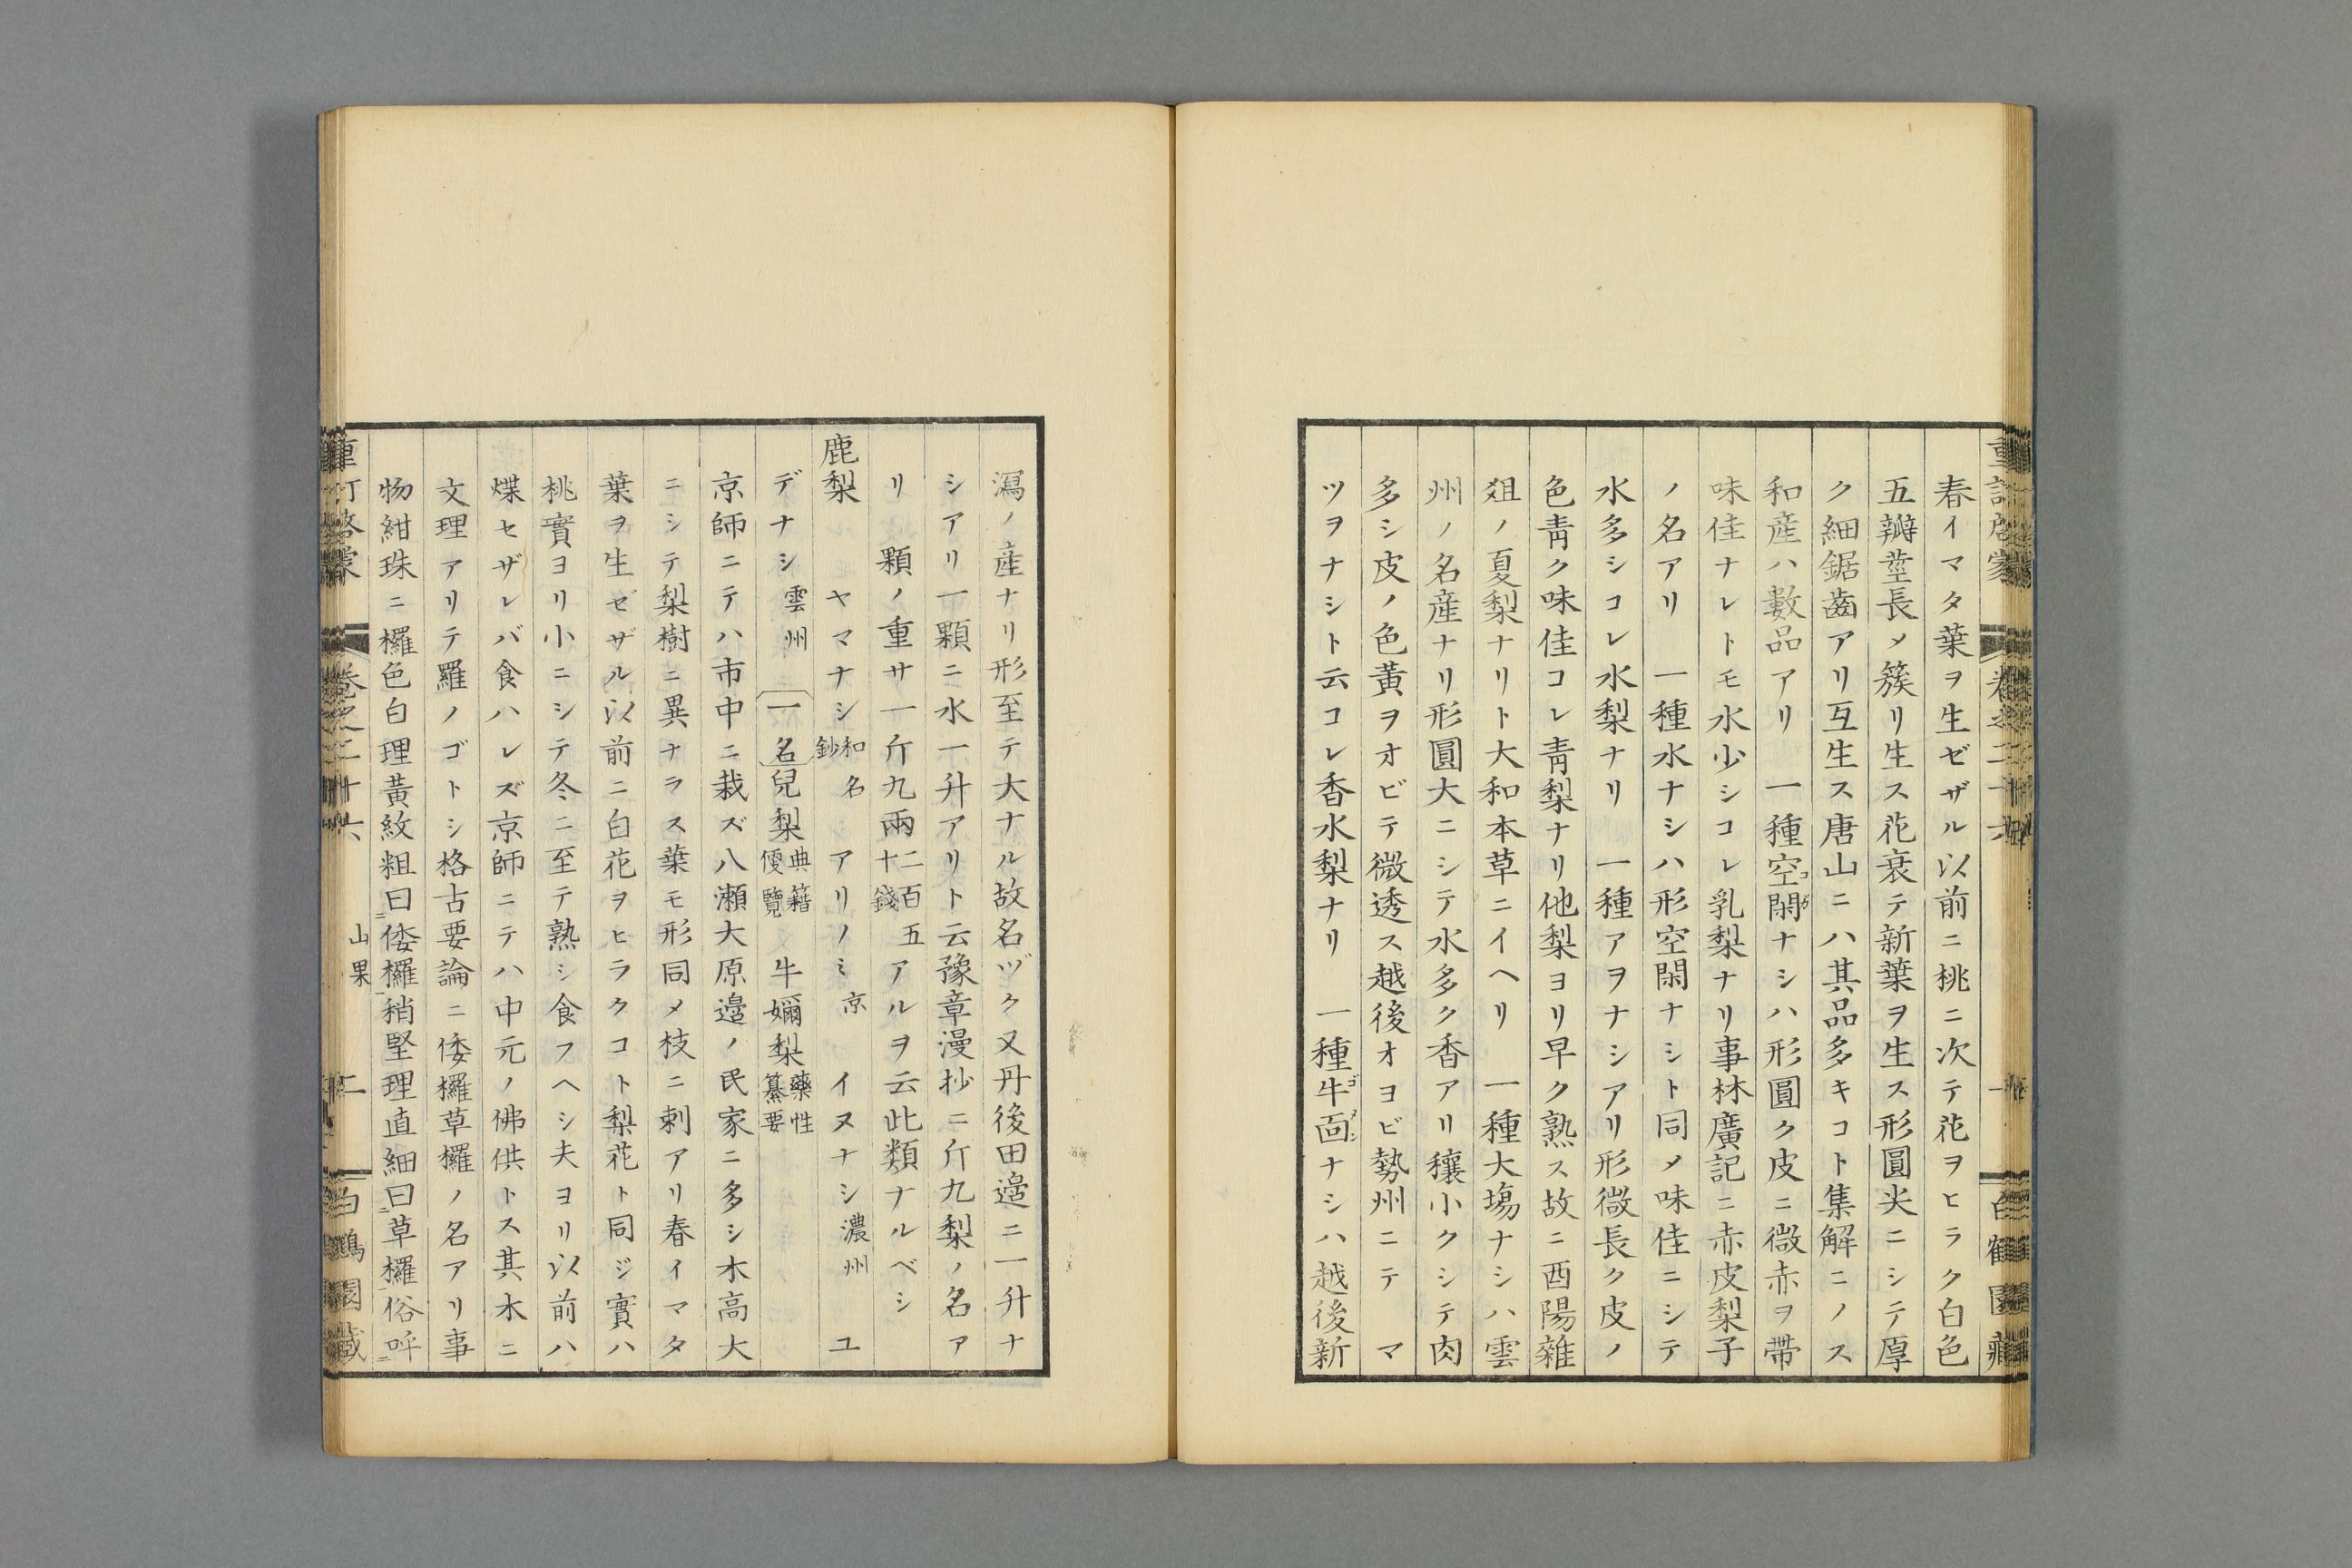 春イマタ葉ヲ生ゼザル以前ニ桃ニ次テ花ヲヒラク白色
五瓣莖長メ簇リ生ス花衰テ新葉ヲ生ス形圓尖ニシテ厚
ク細鋸齒アリ互生ス唐山ニハ其品多キコト集解ニノス
和産ハ數品アリ 一種空閑ナシハ形圓ク皮ニ微赤ヲ帶
味佳ナレトモ水少シコレ乳梨ナリ事林廣記ニ赤皮梨子
ノ名アリ 一種水ナシハ形空閑ナシト同メ味佳ニシテ
水多シコレ水梨ナリ 一種アヲナシアリ形微長ク皮ノ
色靑ク味佳コレ靑梨ナリ他梨ヨリ早ク熟ス故ニ酉陽雜
俎ノ夏梨ナリト大和本草ニイヘリ 一種大塲ナシハ雲
州ノ名産ナリ形圓大ニシテ水多ク香アリ穰小クシテ肉
多シ皮ノ色黃ヲオビテ微透ス越後オヨビ勢州ニテ マ
ツヲナシト云コレ香水梨ナリ 一種牛面ナシハ越後新
瀉ノ産ナリ形至テ大ナル故名ヅク又丹後田邉ニ一升ナ
シアリ一顆ニ水一升アリト云豫章漫抄ニ斤九梨ノ名ア
リ 顆ノ重サ一斤九兩二百五十錢アルヲ云此類ナルベシ
鹿梨 ヤマナシ和名鈔 アリノミ京 イヌナシ濃州 ユ
デナシ雲州 一名兒梨典籍便覽 牛嬭梨藥性纂要
京師ニテハ市中ニ栽ズ八瀬大原邉ノ民家ニ多シ木高大
ニシテ梨樹ニ異ナラス葉モ形同メ枝ニ刺アリ春イマタ
葉ヲ生ゼザル以前ニ白花ヲヒラクコト梨花ト同ジ實ハ
桃實ヨリ小ニシテ冬ニ至テ熟シ食フヘシ夫ヨリ以前ハ
煠セザレバ食ハレズ京師ニテハ中元ノ佛供トス其木ニ
文理アリテ羅ノゴトシ格古要論ニ倭欏草欏ノ名アリ事
物紺珠ニ欏色白理黃紋粗曰倭欏稍堅理直細曰草欏俗呼
卷之二十六 山果 二